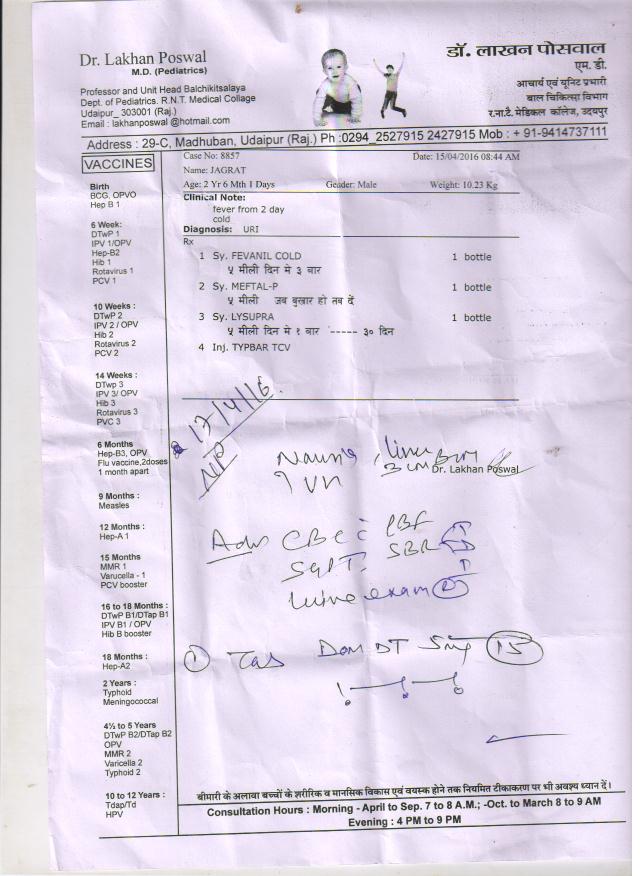 Dr. Lakhan Poswal
M.D. (Pediatrics)
Professor and Unit Head Balchikitsalaya
Dept. of Pediatrics. R.N.T. Medical Collage
Udaipur_ 303001 (Raj.)
Email : lakhanposwal @hotmail.com
डॉ. लाखन पोसवाल
एम. डी.
आचार्य एवं यूनिट प्रभारी
बाल चिकित्सा विभाग
र.ना.टै. मेडिकल कॉलेज, उदयपुर
Address : 29-C, Madhuban, Udaipur (Raj.) Ph :0294_2527915 2427915 Mob : + 91-9414737111
VACCINES
Birth
BCG, OPVO
Hep B 1
6 Week:
DTwP 1
IPV 1/OPV
Hep-B2
Hib 1
Rotavirus 1
PCV 1
10 Weeks :
DTwP 2
IPV 2 / OPV
Hib 2
Rotavirus 2
PCV 2
14 Weeks :
DTwp 3
IPV 3/ OPV
Hib 3
Rotavirus 3
PVC 3
6 Months
Hep-B3, OPV
Flu vaccine,2doses
1 month apart
9 Months :
Measles
12 Months :
Hep-A 1
15 Months
MMR 1
Varucella - 1
PCV booster
16 to 18 Months :
DTwP B1/DTap B1
IPV B1 / OPV
Hib B booster
18 Months :
Hep-A2
2 Years :
Typhoid
Meningococcal
4½ to 5 Years
DTwP B2/DTap B2
OPV
MMR 2
Varicella 2
Typhoid 2
10 to 12 Years :
Tdap/Td
HPV
Case No: 8857 Date: 15/04/2016 08:44 AM
Name: JAGRAT
Age: 2 Yr 6 Mth 1 Days Gender: Male Weight: 10.23 Kg
Clinical Note:
fever from 2 day
cold
Diagnosis: URI
Rx
1 Sy. FEVANIL COLD 1 bottle
५ मीली दिन मे ३ बार
2 Sy. MEFTAL-P 1 bottle
५ मीली जब बुखार हो तब दें
3 Sy. LYSUPRA 1 bottle
५ मीली दिन मे १ बार ----- ३० दिन
4 Inj. TYPBAR TCV
17/4/16.
Liver
Dr. Lakhan Poswal
Adv CBC c PBF
SGPT. SBR
Urine exam
1 Tab Dom DT 5mg 15
बीमारी के अलावा बच्चों के शरीरिक व मानसिक विकास एवं वयस्क होने तक नियमित टीकाकरण पर भी अवश्य ध्यान दें।
Consultation Hours : Morning - April to Sep. 7 to 8 A.M.; -Oct. to March 8 to 9 AM
Evening : 4 PM to 9 PM